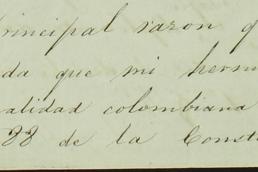 principal razon q
da que mi herm
alidad colombiana
88 de la Const